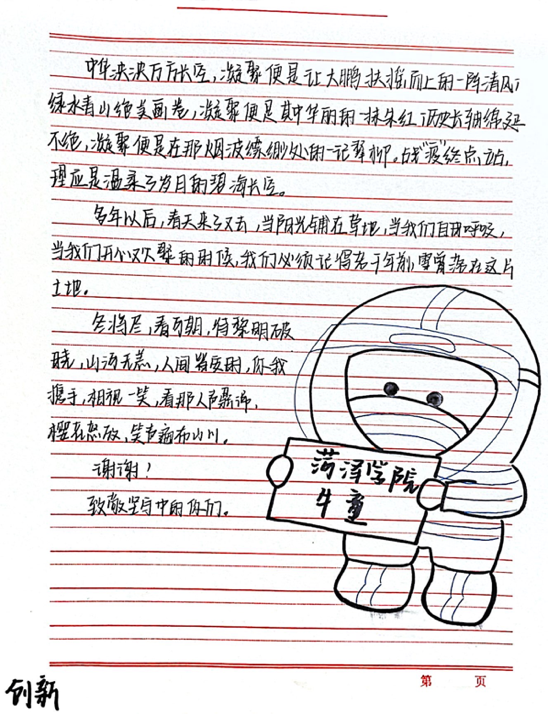 中华泱泱万方长空，凝聚便是让大鹏扶摇而上的一阵清风；
绿水青山绝美画卷，凝聚便是其中华丽的一抹朱红；历史长轴绵延
不绝，凝聚便是在那烟波缥缈处的一记翠柳。战“疫”终点站，
理应是温柔了岁月的碧海长空。
多年以后，春天来了又去，当阳光铺在草地，当我们自由呼吸，
当我们开心欢聚的时候，我们必须记得若干年前，曾有落在这片
土地。
冬将尽，春可期，待黎明破
晓，山河无恙，人间皆安时，你我
携手，相视一笑，看那人声鼎沸，
樱花怒放，笑声遍布山川。
谢谢！
致敬坚守中的你们。
菏泽学院
牛童
第 页
创新